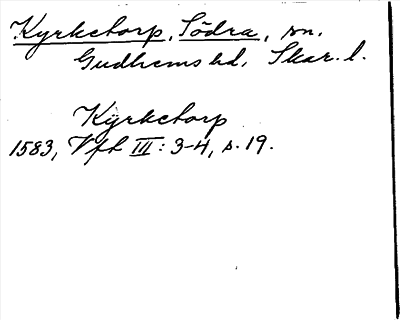 Kyrketorp, Södra, sn.
Gudhems hd, Skar. l.
Kyrketorp
1583, Vfh III: 3-4, s. 19.